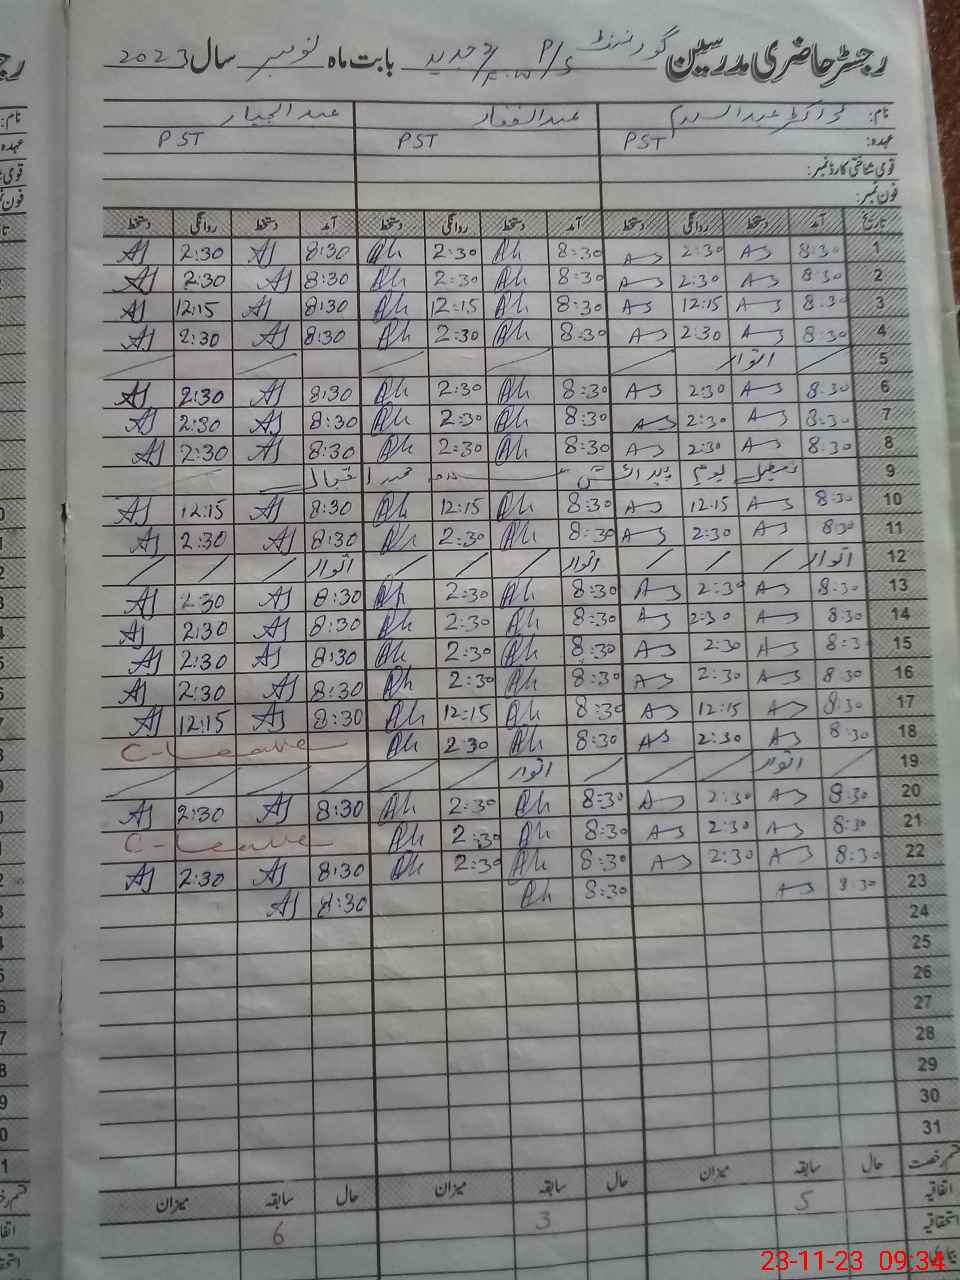 رجسٹر حاضری مدرسین گورنمنٹ P/S جدید بابت ماہ نومبر سال 2023
نام: ڈاکٹر عبدالسلام عبدالغفار عبدالجبار
عہدہ: PST PST PST
قومی شناختی کارڈ نمبر:
فون نمبر:
تاریخ آمد دستخط روانگی دستخط آمد دستخط روانگی دستخط آمد دستخط روانگی دستخط
1 8:30 As 2:30 As 8:30 Ah 2:30 Ah 8:30 AJ 2:30 AJ
2 8:30 As 2:30 As 8:30 Ah 2:30 Ah 8:30 AJ 2:30 AJ
3 8:30 As 12:15 As 8:30 Ah 12:15 Ah 8:30 AJ 12:15 AJ
4 8:30 As 2:30 As 8:30 Ah 2:30 Ah 8:30 AJ 2:30 AJ
5 اتوار
6 8:30 As 2:30 As 8:30 Ah 2:30 Ah 8:30 AJ 2:30 AJ
7 8:30 As 2:30 As 8:30 Ah 2:30 Ah 8:30 AJ 2:30 AJ
8 8:30 As 2:30 As 8:30 Ah 2:30 Ah 8:30 AJ 2:30 AJ
9 تعطیل یوم پیدائش محمد اقبال
10 8:30 As 12:15 As 8:30 Ah 12:15 Ah 8:30 AJ 12:15 AJ
11 8:30 As 2:30 As 8:30 Ah 2:30 Ah 8:30 AJ 2:30 AJ
12 اتوار اتوار اتوار
13 8:30 As 2:30 As 8:30 Ah 2:30 Ah 8:30 AJ 2:30 AJ
14 8:30 As 2:30 As 8:30 Ah 2:30 Ah 8:30 AJ 2:30 AJ
15 8:30 As 2:30 As 8:30 Ah 2:30 Ah 8:30 AJ 2:30 AJ
16 8:30 As 2:30 As 8:30 Ah 2:30 Ah 8:30 AJ 2:30 AJ
17 8:30 As 12:15 As 8:30 Ah 12:15 Ah 8:30 AJ 12:15 AJ
18 8:30 As 2:30 As 8:30 Ah 2:30 Ah C-Leave
19 اتوار اتوار
20 8:30 As 2:30 As 8:30 Ah 2:30 Ah 8:30 AJ 2:30 AJ
21 8:30 As 2:30 As 8:30 Ah 2:30 Ah C-Leave
22 8:30 As 2:30 As 8:30 Ah 2:30 Ah 8:30 AJ 2:30 AJ
23 8:30 As 8:30 Ah 8:30 AJ
24
25
26
27
28
29
30
31
قسم رخصت حال سابقہ میزان حال سابقہ میزان حال سابقہ میزان
اتفاقیہ 5 3 6
استحقاقیہ
23-11-23 09:34